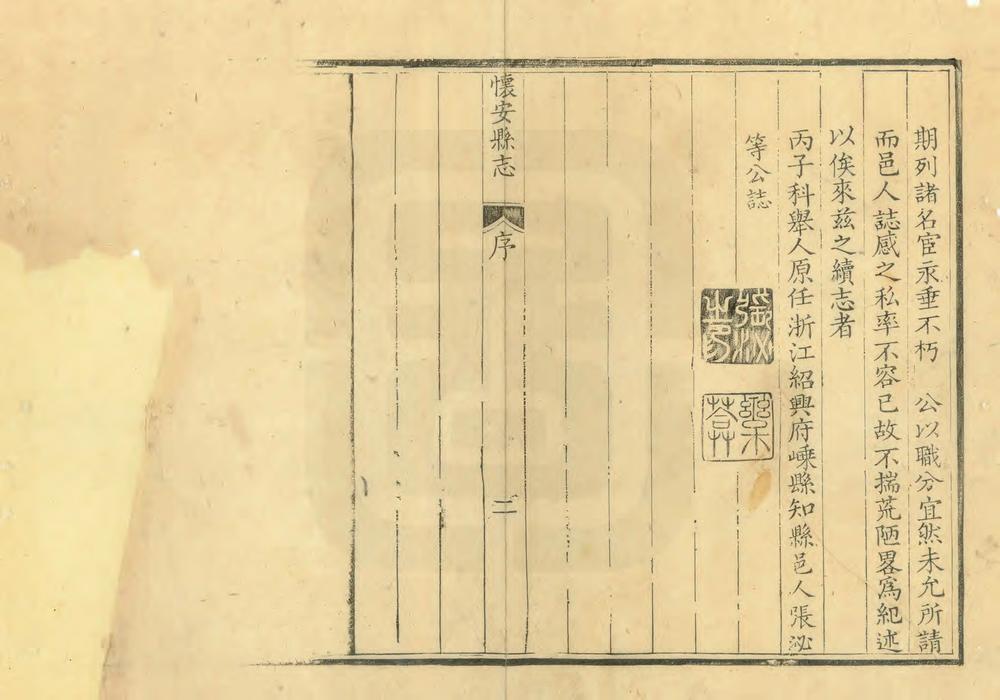 期列諸名宦永垂不朽　公以職分宜然未允所請
而邑人誌感之私率不容已故不揣荒陋畧為紀述
以俟來茲之續志者
丙子科舉人原任浙江紹興府嵊縣知縣邑人張泌
等公誌
懷安縣志
序
二